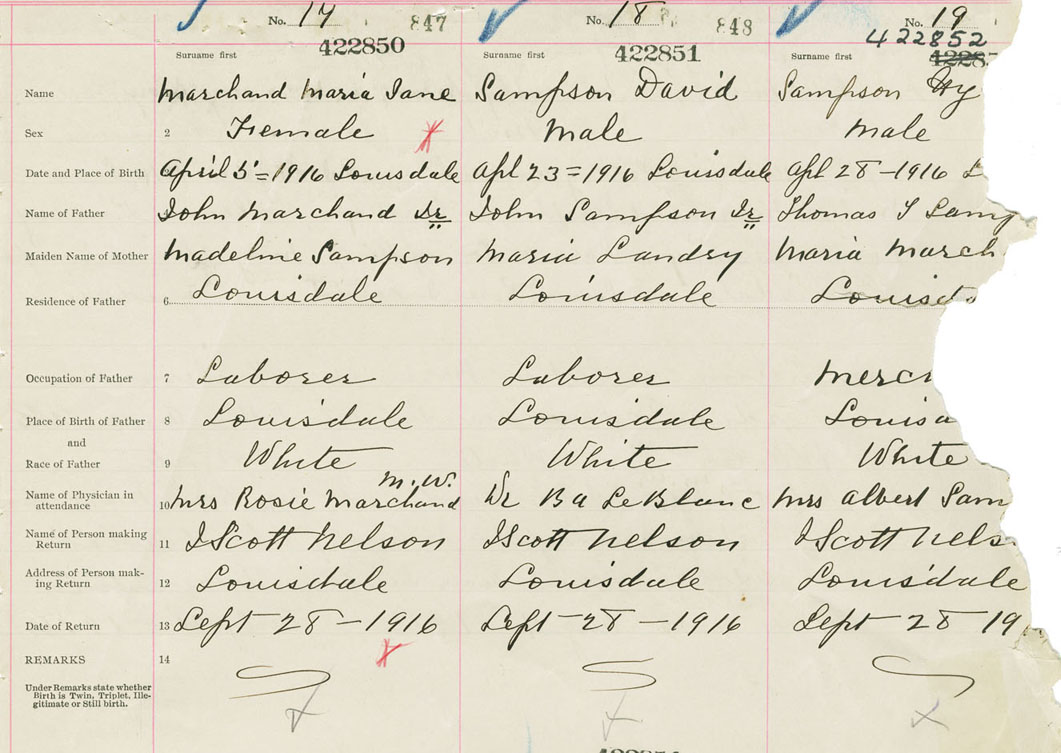 No. 17 847 No. 18 848 No. 19
422850 422851 422852
Surname first Surname first Surname first 4228
Name Marchand Maria Jane Sampson David Sampson Hy
Sex 2 Female Male Male
Date and Place of Birth April 5=1916 Louisdale Apl 23=1916 Louisdale Apl 28-1916 L
Name of Father John Marchand Sr John Sampson Jr Thomas T Samp
Maiden Name of Mother Madeline Sampson Maria Landry Maria March
Residence of Father 6 Louisdale Louisdale Louisda
Occupation of Father 7 Laborer Laborer Merc
Place of Birth of Father 8 Louisdale Louisdale Louisd
and
Race of Father 9 White White White
M.W.
Name of Physician in
attendance 10 Mrs Rosie Marchand Dr B A LeBlanc Mrs Albert Sam
Name of Person making
Return 11 J Scott Nelson J Scott Nelson J Scott Nels
Address of Person mak-
ing Return 12 Louisdale Louisdale Louisdale
Date of Return 13 Sept 28-1916 Sept-28-1916 Sept-28 19
REMARKS 14
Under Remarks state whether
Birth is Twin, Triplet, Ille-
gitimate or Still birth.